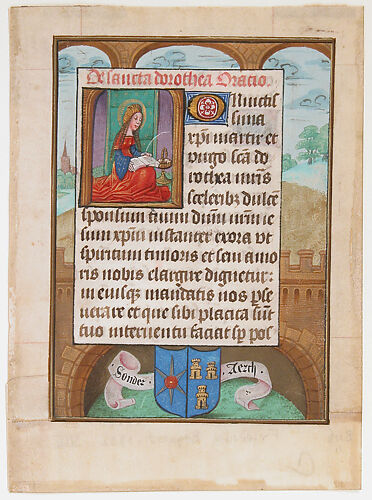 De sancta dorothea Oratio
O Inuictis
sima
xp̄i martir et
virgo scā do
rothea nr̄is
sceleribꝫ dulcē
sponsum tuum dn̄m nr̄m ie
sum xp̄m instanter exora vt
spiritum timoris et sc̄m amo
ris nobis elargire dignetur:
in eiusqꝫ mandatis nos ꝑse
uerare et que sibi placita sūt
tuo interuentu faciat sꝑ pos
Sonder · Aerch ·